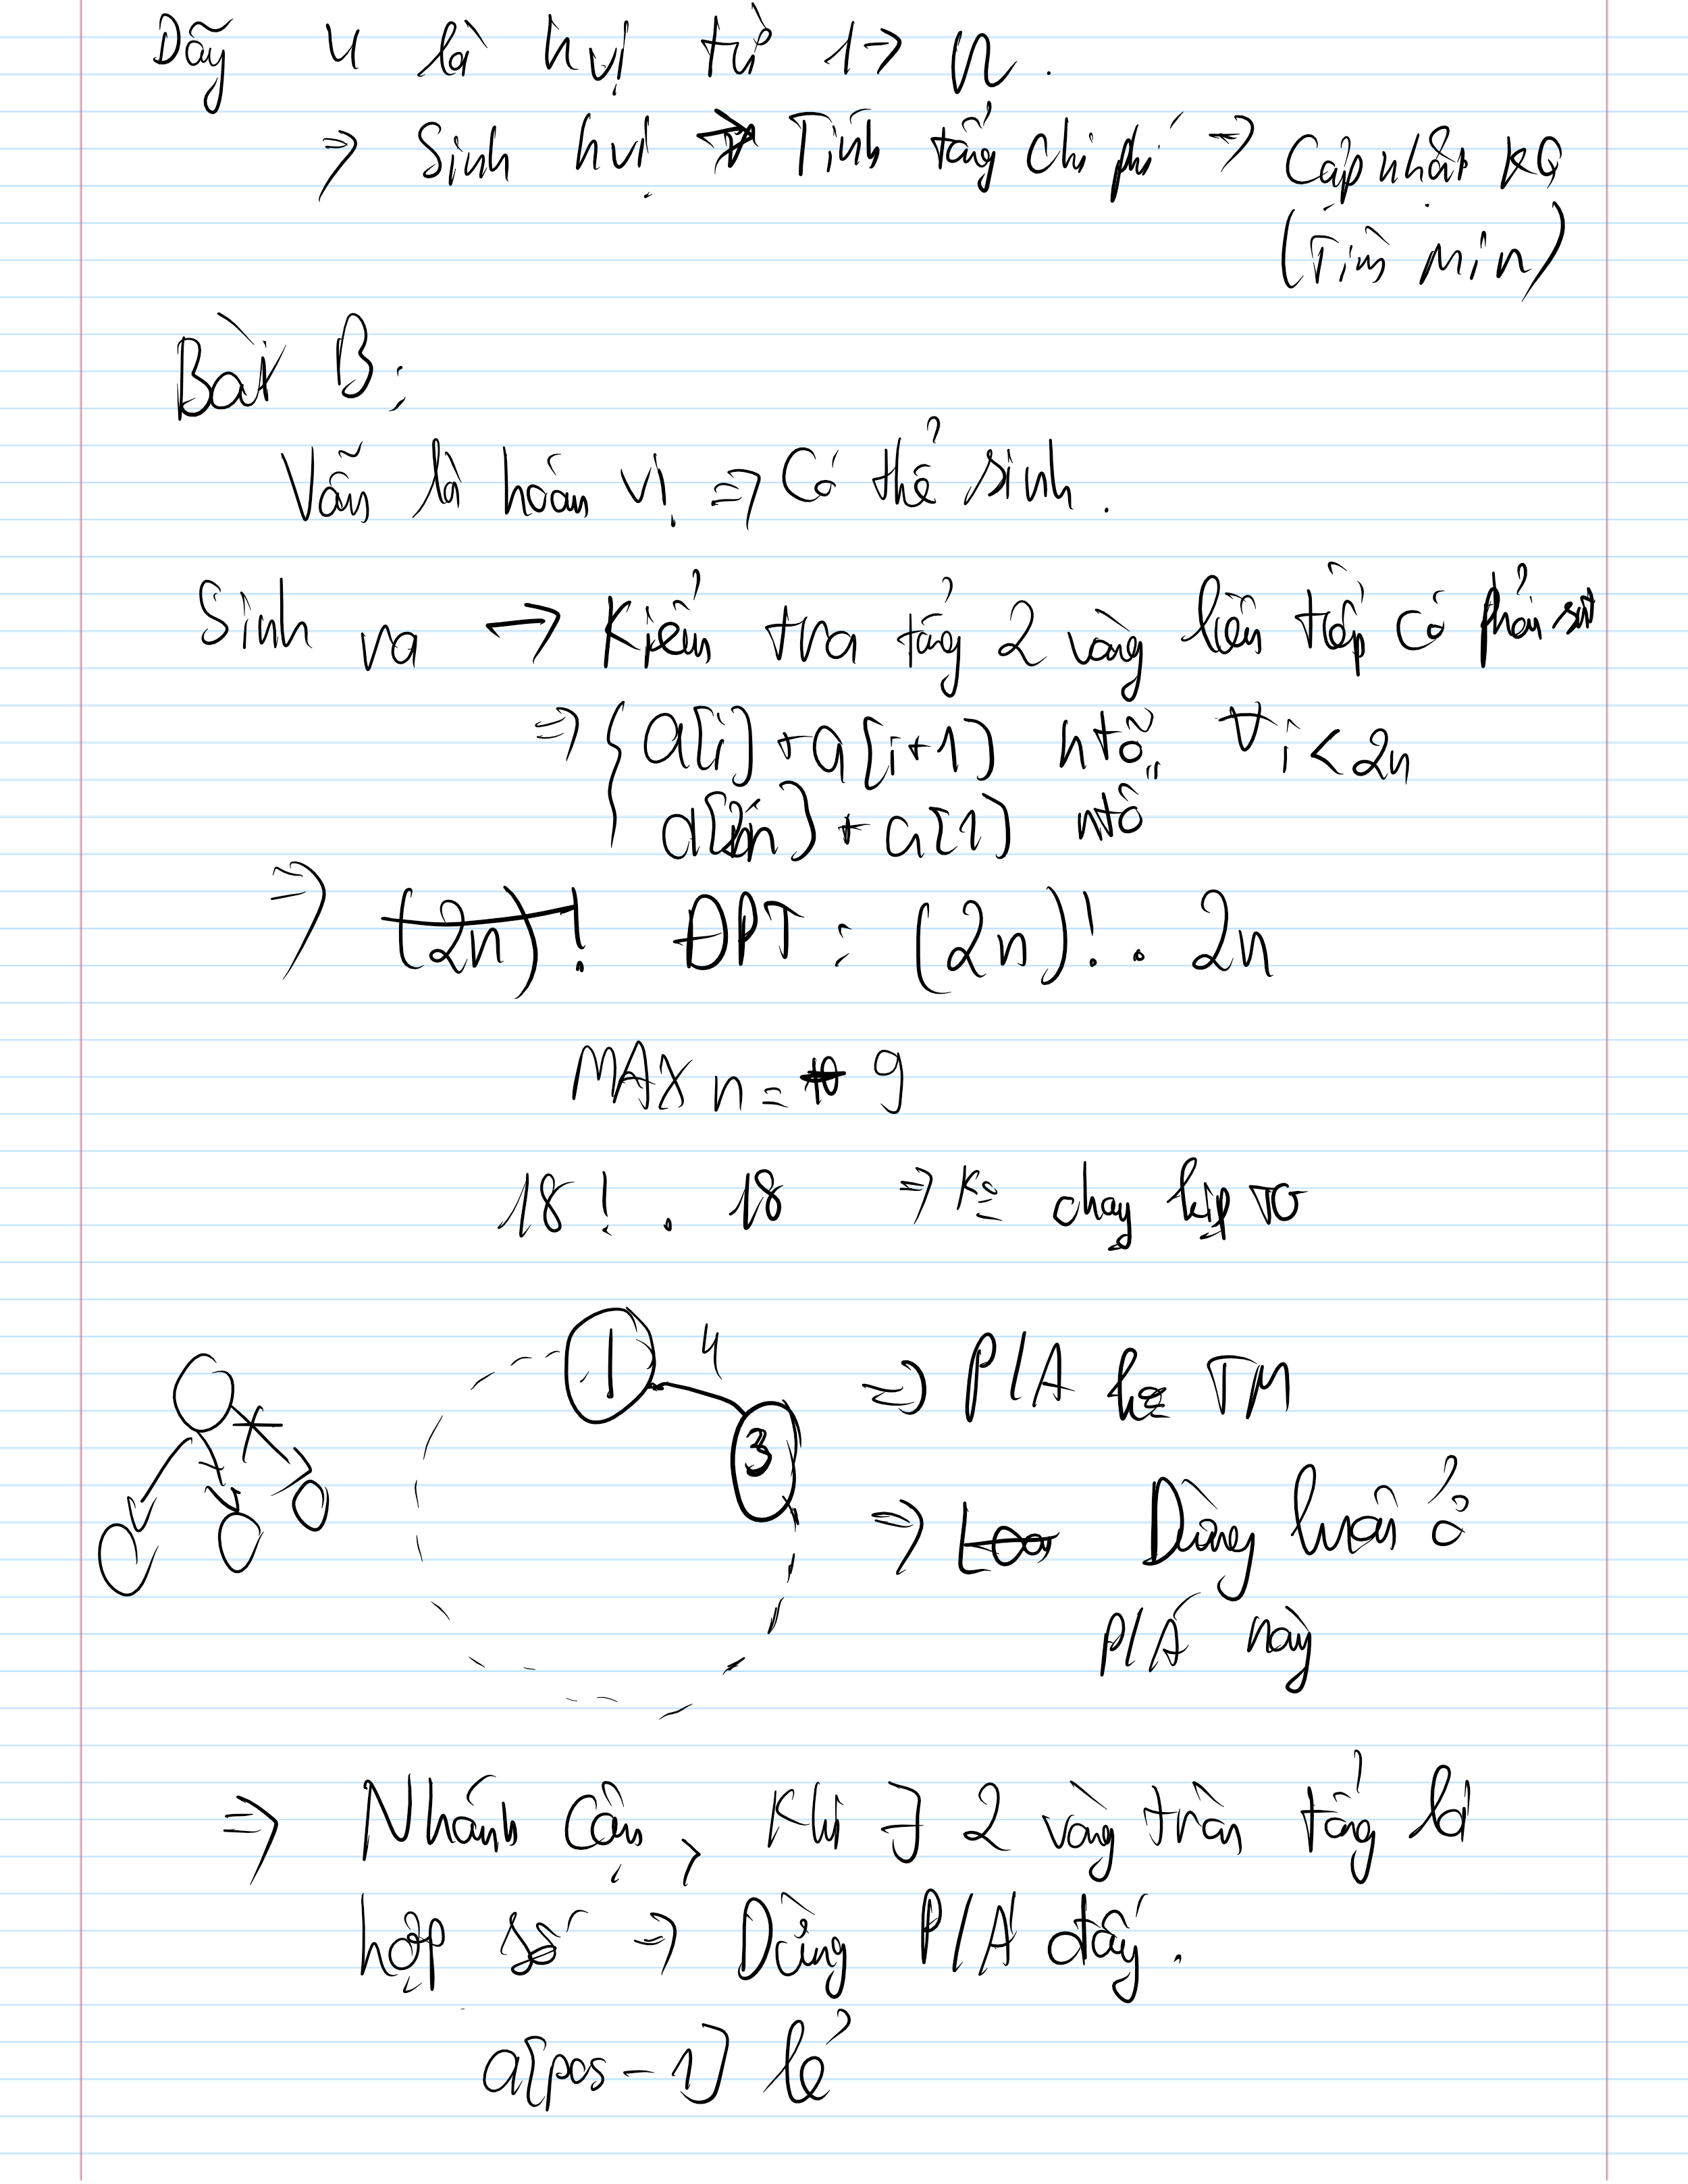 Dãy u là hvị từ 1 → n.
⇒ Sinh hvị → Tính tổng chi phí ⇒ Cập nhật KQ
(Tìm min)
Bài B:
Vẫn là hoán vị ⇒ Có thể sinh.
Sinh ra → Kiểm tra tổng 2 vòng liên tiếp có phải snt
⇒ { a[i] + a[i+1] ntố, ∀i < 2n
a[2n] + a[1] ntố
⇒ (2n)! ĐPT: (2n)! . 2n
MAX n = 9
18! . 18 ⇒ K° chạy kịp
1 4 ⇒ P/A k° TM
3
⇒ Dừng luôn ở
P/A này
⇒ Nhánh cận, Khi ∃ 2 vòng tròn tổng là
hợp số ⇒ Dừng P/A đấy.
a[pos-1] lẻ